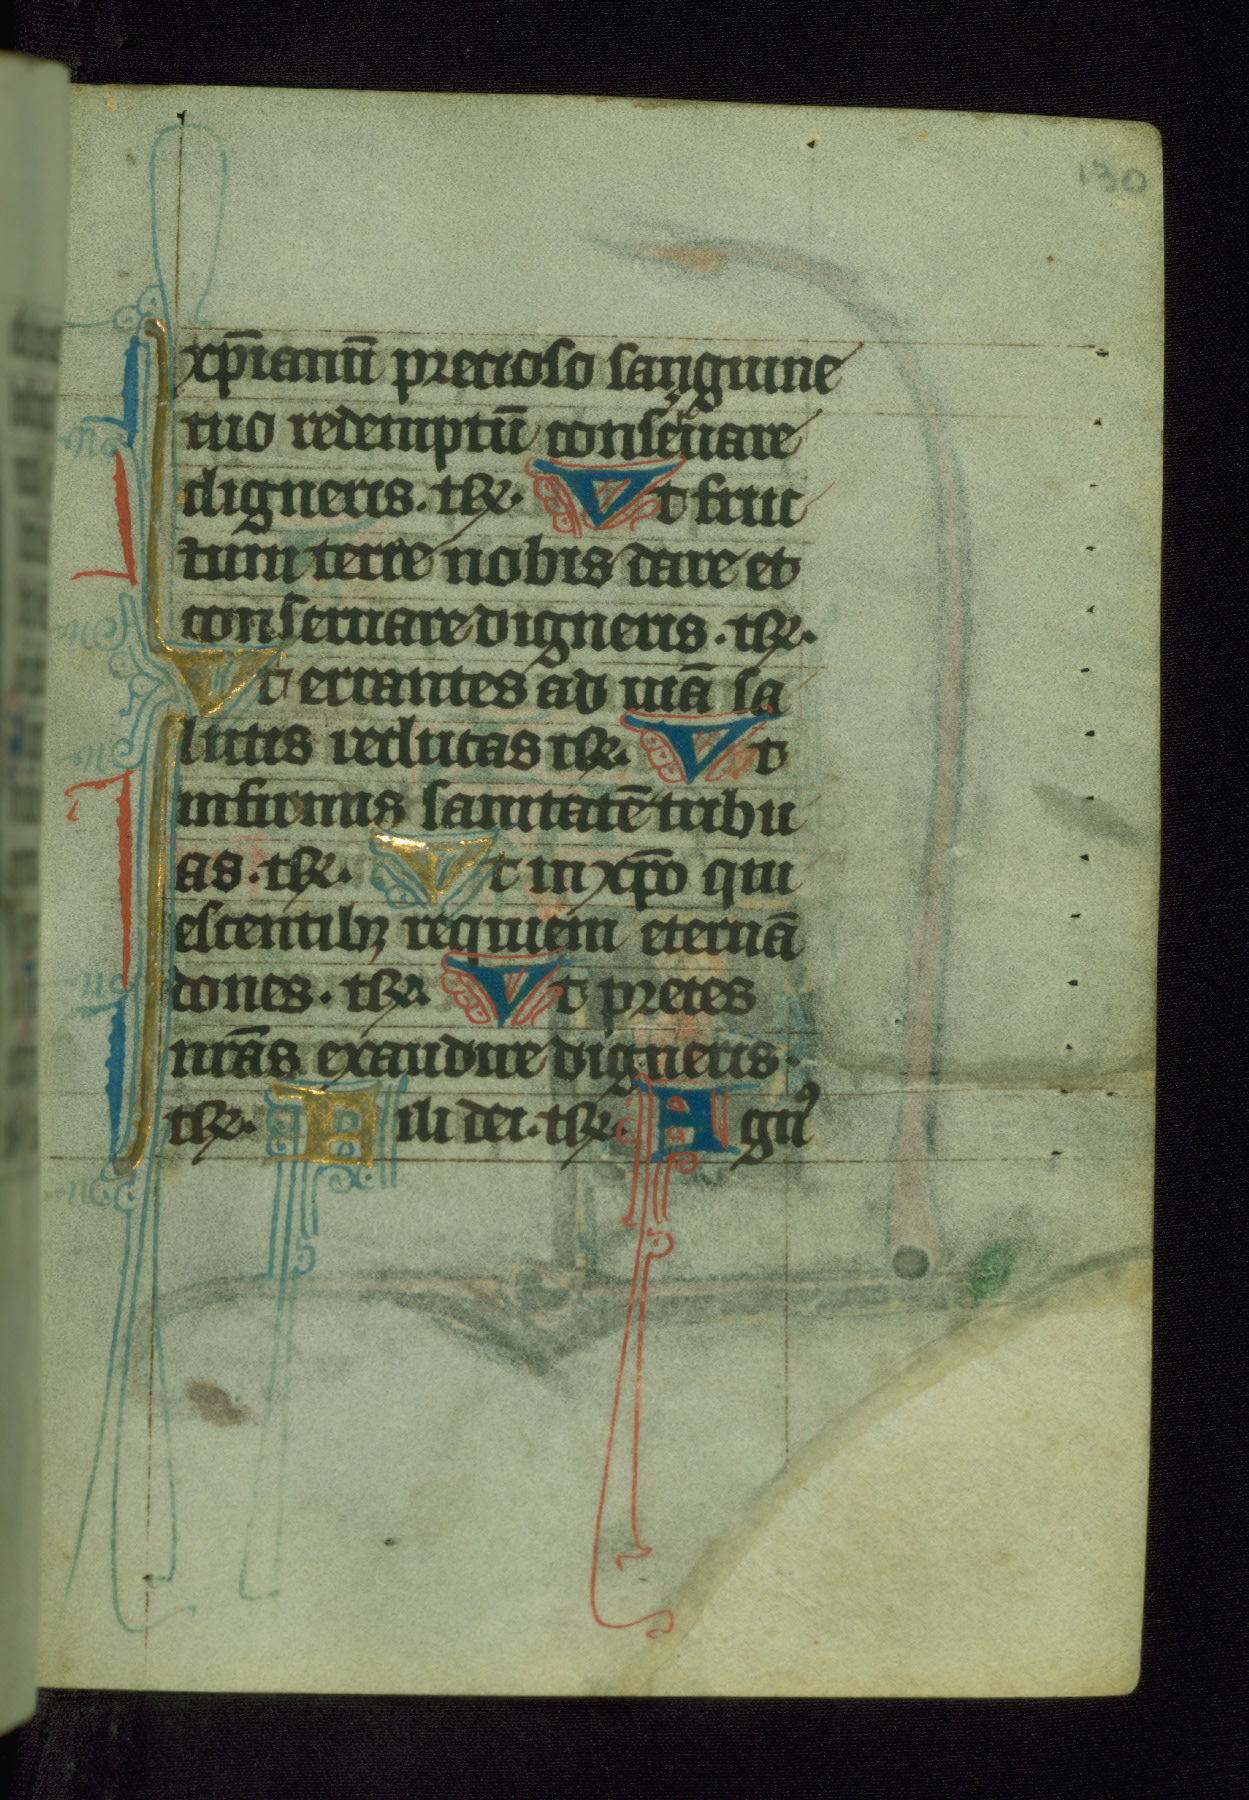 130
xp̄ianū precioso sanguine
tuo redemptū conseruare
digneris. te R̃. Vt fruc
tum terre nobis dare et
conseruare digneris. te R̃.
Vt errantes ad uiā sa
lutis reducas te R̃. Vt
infirmis sanitatē tribu
as. te R̃. Vt in xp̄o qui
escentibꝫ requiem eternā
dones. te R̃. Vt preces
nr̄as exaudire digneris.
te R̃. Fili dei. te R̃. Agnꝰ